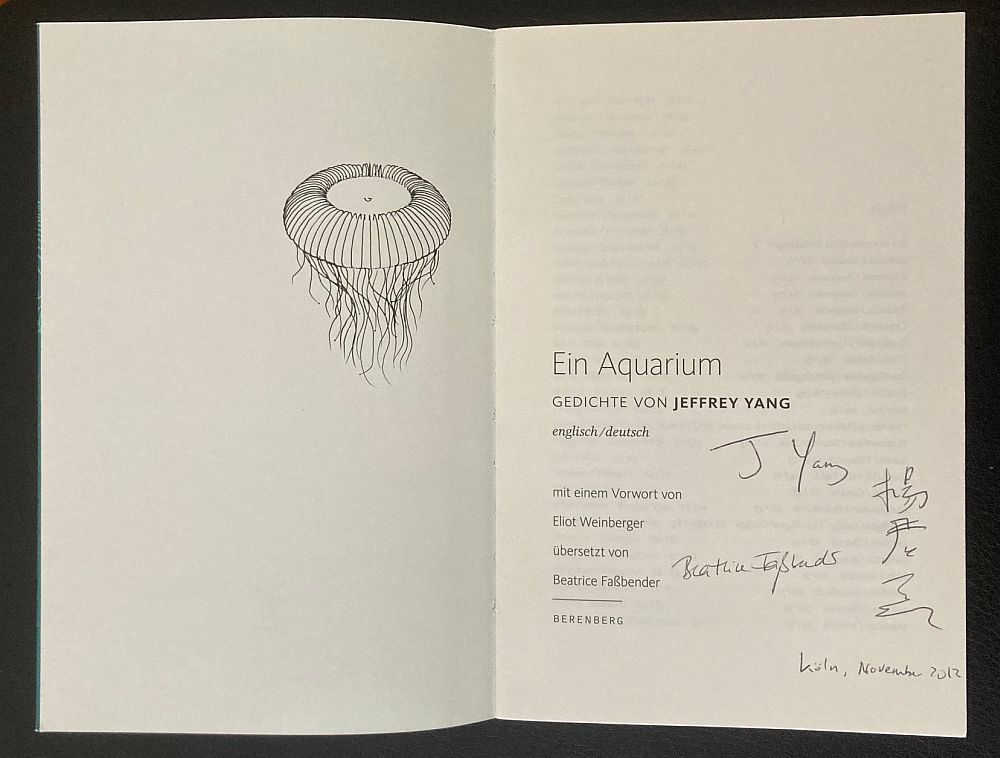 Ein Aquarium
GEDICHTE VON JEFFREY YANG
englisch/deutsch
J Yang
mit einem Vorwort von
Eliot Weinberger
übersetzt von
Beatrice Faßbender
Beatrice Faßbender
BERENBERG
楊
Köln, November 2012